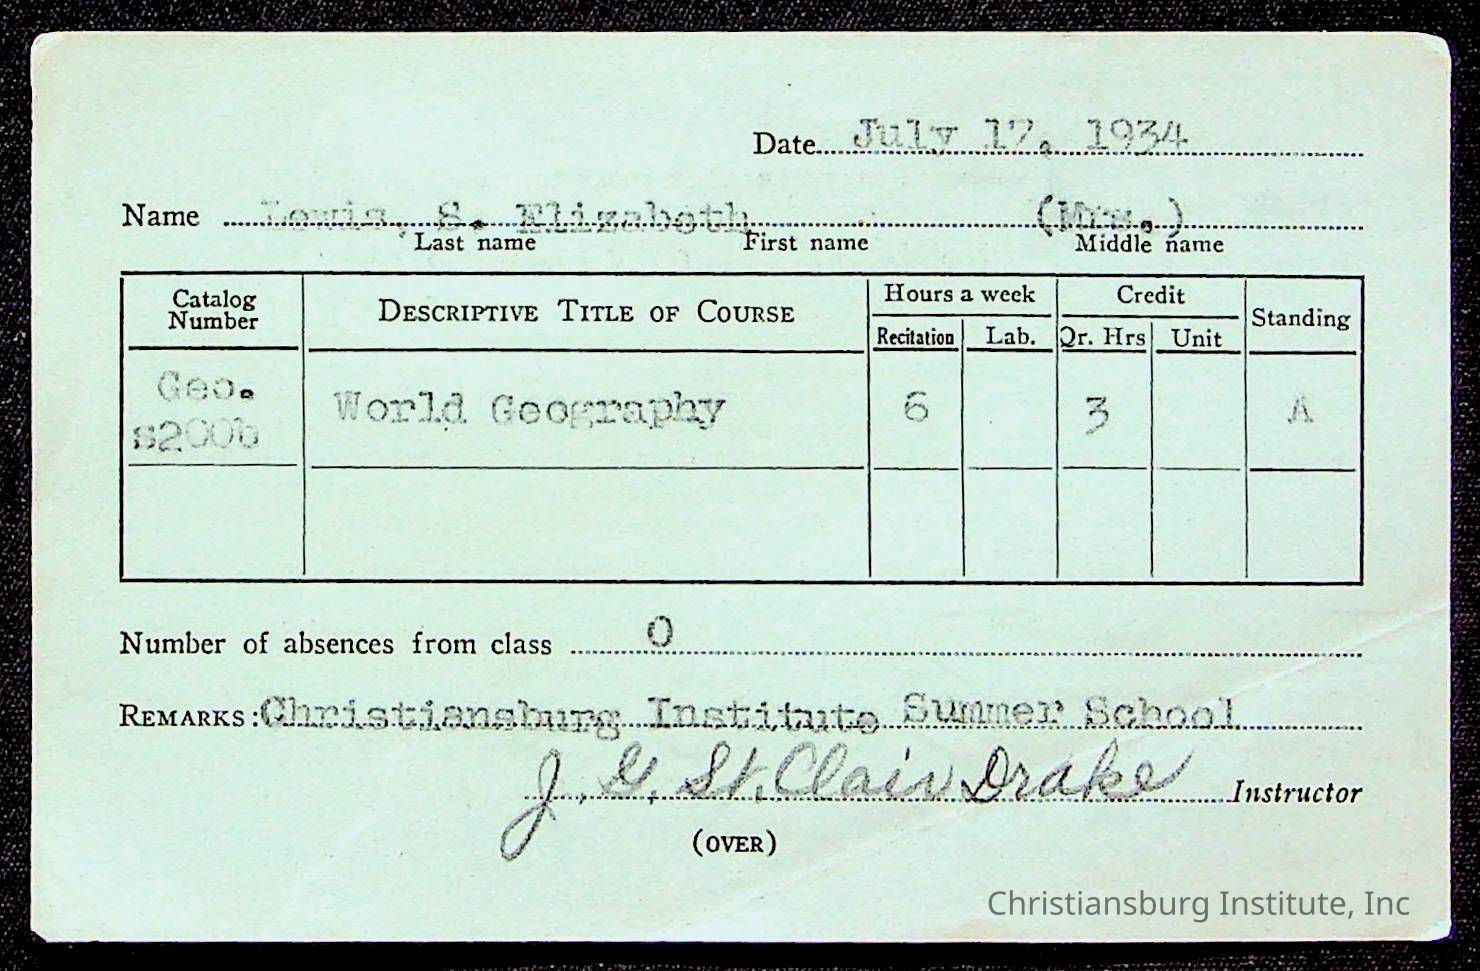 Date July 17, 1934
Name Lewis, S. Elizabeth (Mrs.)
Last name First name Middle name
Catalog Number DESCRIPTIVE TITLE OF COURSE Hours a week Credit Standing
Recitation Lab. Qr. Hrs Unit
Geo. s200b World Geography 6 3 A
Number of absences from class 0
REMARKS: Christiansburg Institute Summer School
J. G. St. Clair Drake Instructor
(OVER)
Christiansburg Institute, Inc